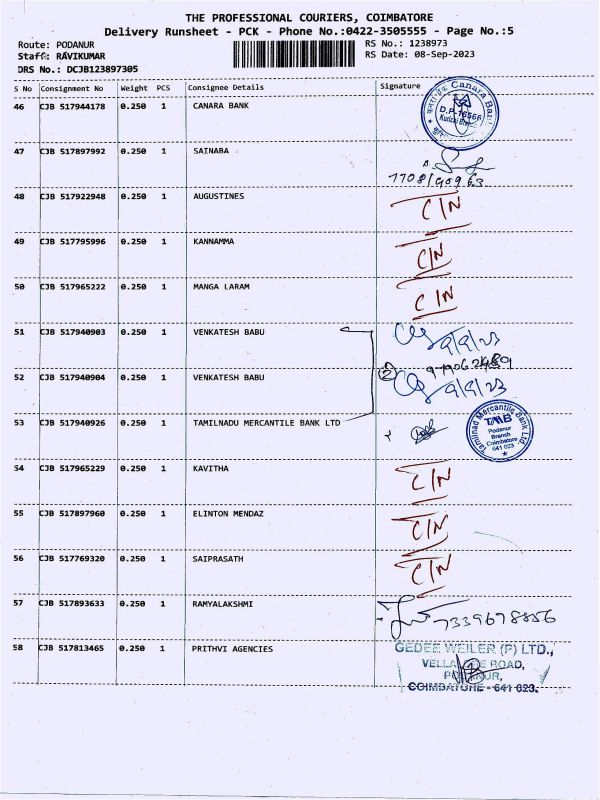 THE PROFESSIONAL COURIERS, COIMBATORE
Delivery Runsheet - PCK - Phone No.:0422-3505555 - Page No.:5
Route: PODANUR
RS No.: 1238973
Staff: RAVIKUMAR
RS Date: 08-Sep-2023
DRS No.: DCJB123897305
S No Consignment No Weight PCS Consignee Details Signature
46 CJB 517944178 0.250 1 CANARA BANK
Canara Bank
D.P. 16566
47 CJB 517897992 0.250 1 SAINABA
48 CJB 517922948 0.250 1 AUGUSTINES C/N
49 CJB 517795996 0.250 1 KANNAMMA C/N
50 CJB 517965222 0.250 1 MANGA LARAM C/N
51 CJB 517940903 0.250 1 VENKATESH BABU 9/9/23
52 CJB 517940904 0.250 1 VENKATESH BABU 9/9/23
53 CJB 517940926 0.250 1 TAMILNADU MERCANTILE BANK LTD
Tamilnad Mercantile Bank Ltd.
TMB
Podanur
Branch
Coimbatore
641 023
54 CJB 517965229 0.250 1 KAVITHA C/N
55 CJB 517897960 0.250 1 ELINTON MENDAZ C/N
56 CJB 517769320 0.250 1 SAIPRASATH C/N
57 CJB 517893633 0.250 1 RAMYALAKSHMI 7339678856
58 CJB 517813465 0.250 1 PRITHVI AGENCIES
GEDEE WEILER (P) LTD.,
ROAD,
COIMBATORE - 641 023.